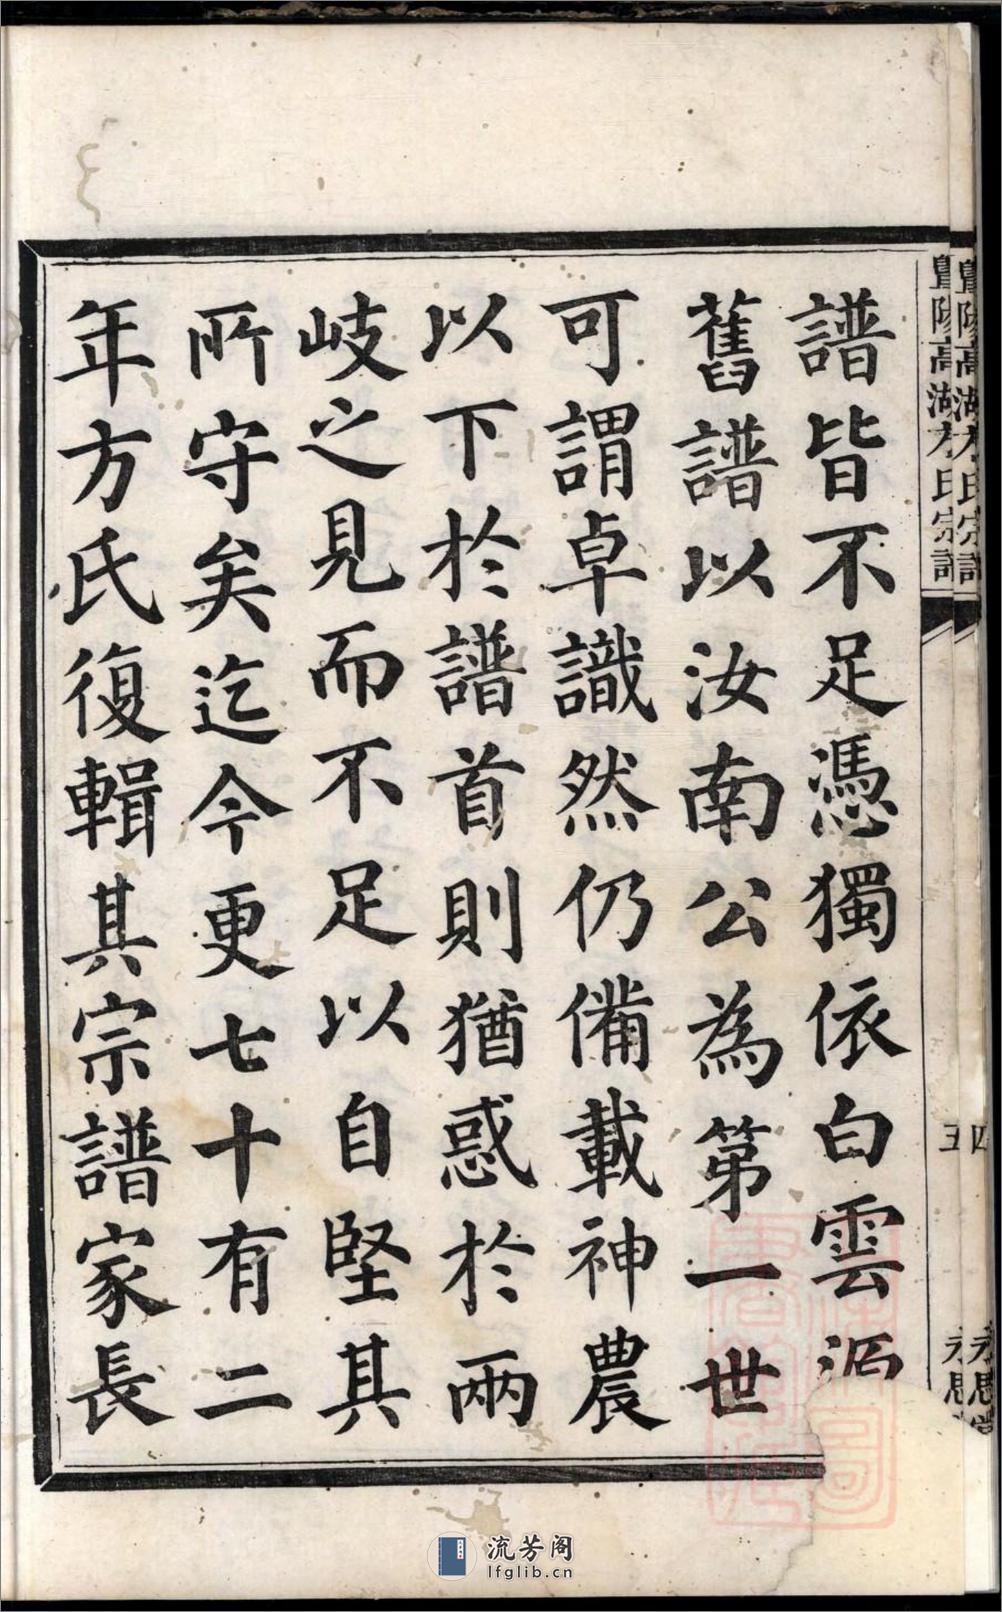 譜皆不足憑獨依白雲源
舊譜以汝南公為第一世
可謂卓識然仍備載神農
以下於譜首則猶惑於兩
岐之見而不足以自堅其
所守矣迄今更七十有二
年方氏復輯其宗譜家長
暨陽高湖方氏宗譜
五
永思
暨陽高湖方氏宗譜
四
永思堂
流芳阁
lfglib.cn